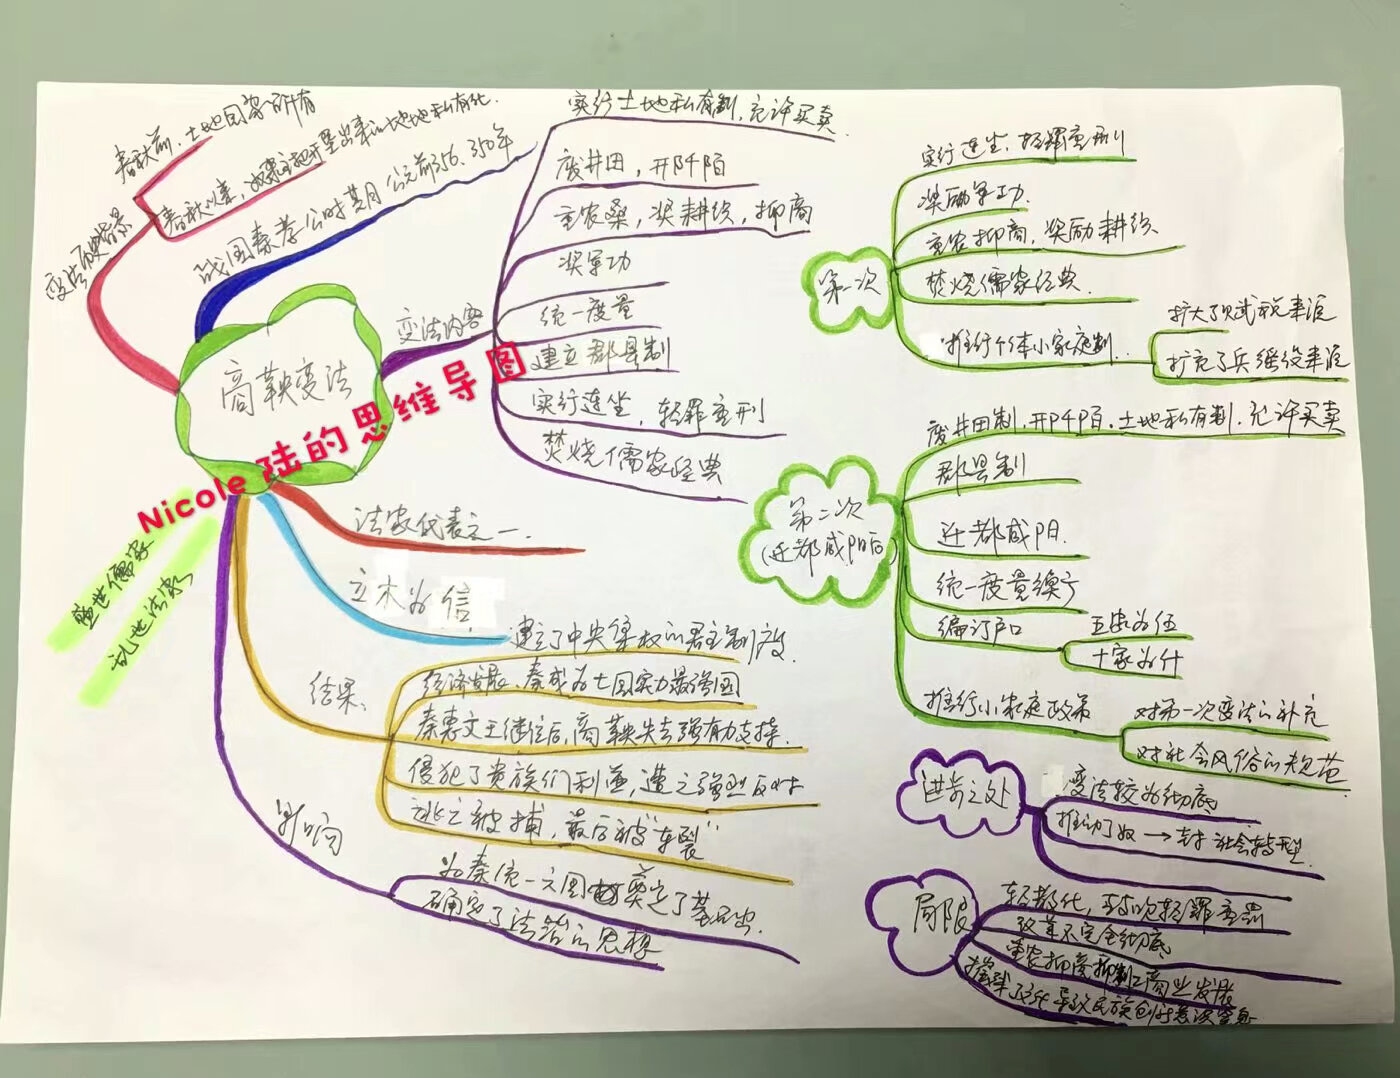 商鞅变法
Nicole 陆的思维导图
变法历史背景
春秋前，土地国家所有
春秋以来，奴隶主把开垦出来的土地私有化.
战国秦孝公时期 公元前356、350年
变法内容
实行土地私有制，允许买卖.
废井田，开阡陌
重农桑，奖耕织，抑商
奖军功
统一度量
建立郡县制
实行连坐，轻罪重刑
焚烧儒家经典
法家代表之一.
立木为信.
盛世儒家
乱世法家
结果、
建立了中央集权的君主制度.
经济发展、秦成为七国实力最强国
秦惠文王继位后，商鞅失去强有力支持.
侵犯了贵族们利益，遭之强烈反对
逃亡被捕，最后被“车裂”
影响
为秦统一六国奠定了基础.
确定了法治的思想
第一次
实行连坐、轻罪重刑
奖励军功.
重农抑商，奖励耕织.
焚烧儒家经典.
推行个体小家庭制..
扩大了赋税来源
扩充了兵徭役来源
第二次
(迁都咸阳后)
废井田制，开阡陌，土地私有制，允许买卖
郡县制
迁都咸阳.
统一度量衡
编订户口
五家为伍
十家为什
推行小家庭政策
对第一次变法的补充
对社会风俗的规范
进步之处
变法较为彻底
推动了奴→封 社会转型.
局限
轻教化，轻罪重罚
改革不完全彻底
重农抑商抑制工商业发展